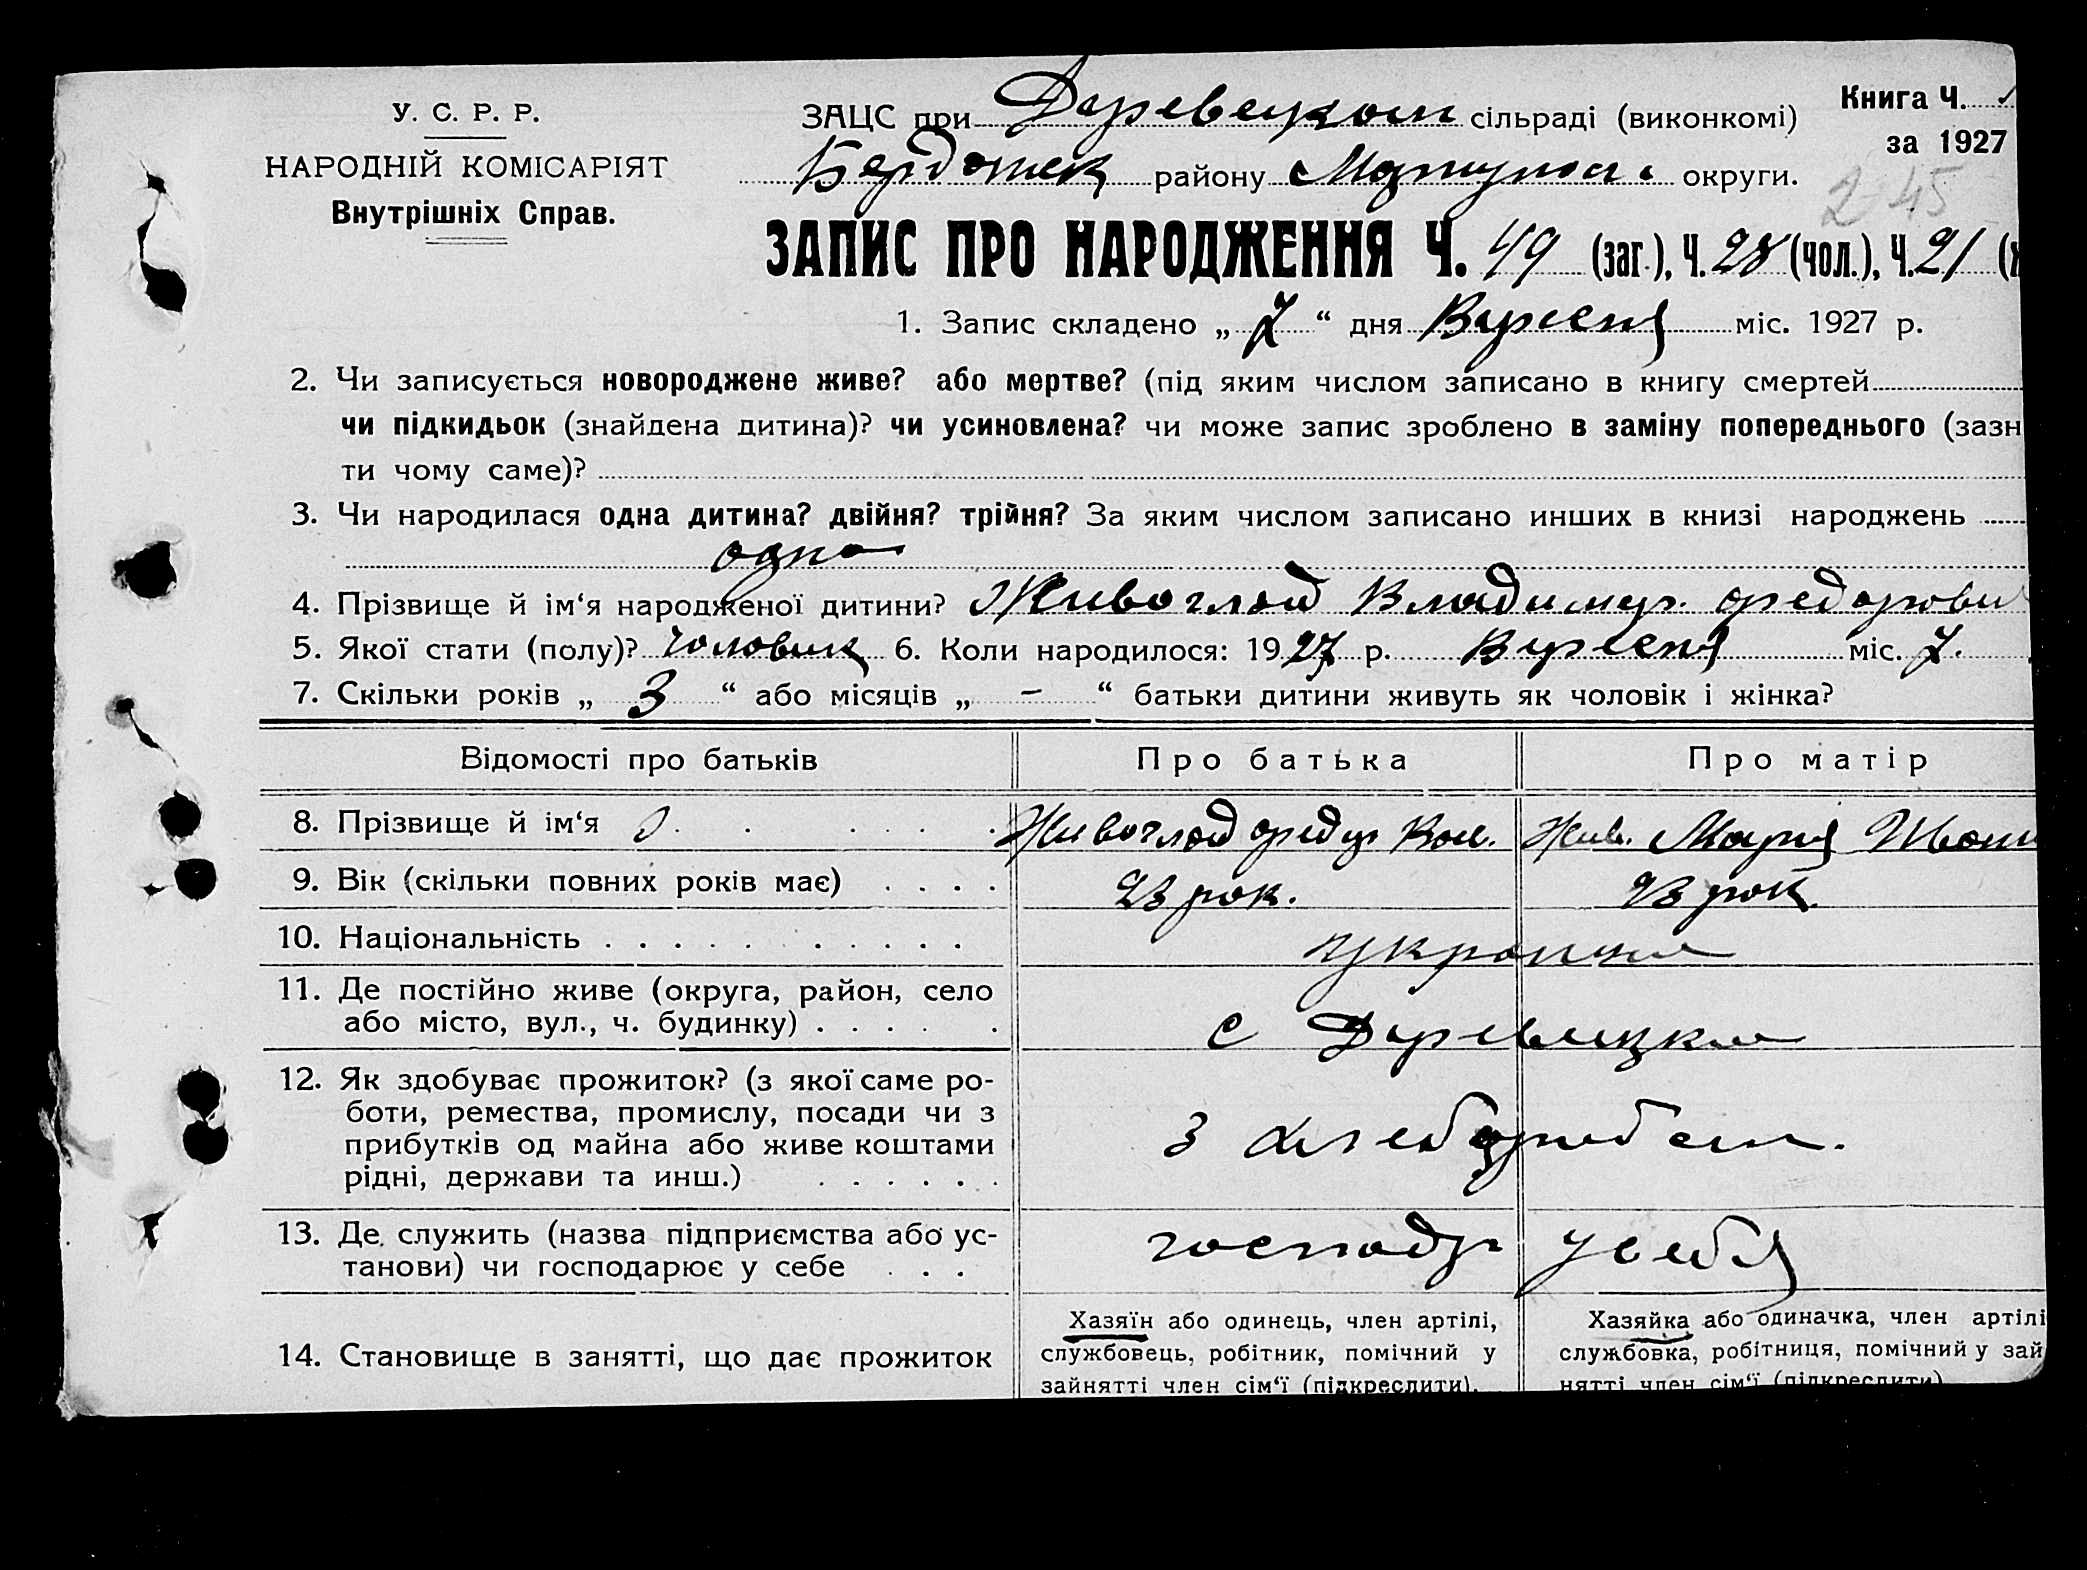 У. С. Р. Р.
НАРОДНІЙ КОМІСАРІЯТ
Внутрішніх Справ.
Книга Ч.
за 1927
ЗАЦС при Деревецком сільраді (виконкомі)
району округи.
245
ЗАПИС ПРО НАРОДЖЕННЯ Ч. 49 (заг.), Ч. 28 (чол.), Ч. 21
1. Запис складено „ 7 “ дня Вересня міс. 1927 р.
2. Чи записується новороджене живе? або мертве? (під яким числом записано в книгу смертей
чи підкидьок (знайдена дитина)? чи усиновлена? чи може запис зроблено в заміну попереднього (зазн
ти чому саме)?
3. Чи народилася одна дитина? двійня? трійня? За яким числом записано инших в книзі народжень
одна
4. Прізвище й ім‘я народженої дитини? Живоглад Владимир. Федорови
5. Якої стати (полу)? чоловик 6. Коли народилося: 1927 р. Вересня міс. 7.
7. Скільки років „ 3 “ або місяців „ – “ батьки дитини живуть як чоловік і жінка?
Відомості про батьків Про батька Про матір
8. Прізвище й ім‘я Живоглад Федор Жив. Мария
9. Вік (скільки повних років має) 23 рок. 23 рок.
10. Національність
11. Де постійно живе (округа, район, село
або місто, вул., ч. будинку) с
12. Як здобуває прожиток? (з якої саме ро-
боти, ремества, промислу, посади чи з
прибутків од майна або живе коштами
рідні, держави та инш.) з
13. Де служить (назва підприємства або ус-
танови) чи господарює у себе господар у себя
14. Становище в занятті, що дає прожиток
Хазяїн або одинець, член артілі,
службовець, робітник, помічний у
зайнятті член сім‘ї (підкреслити).
Хазяйка або одиначка, член артілі
службовка, робітниця, помічний у зай
нятті член сім‘ї (підкреслити)